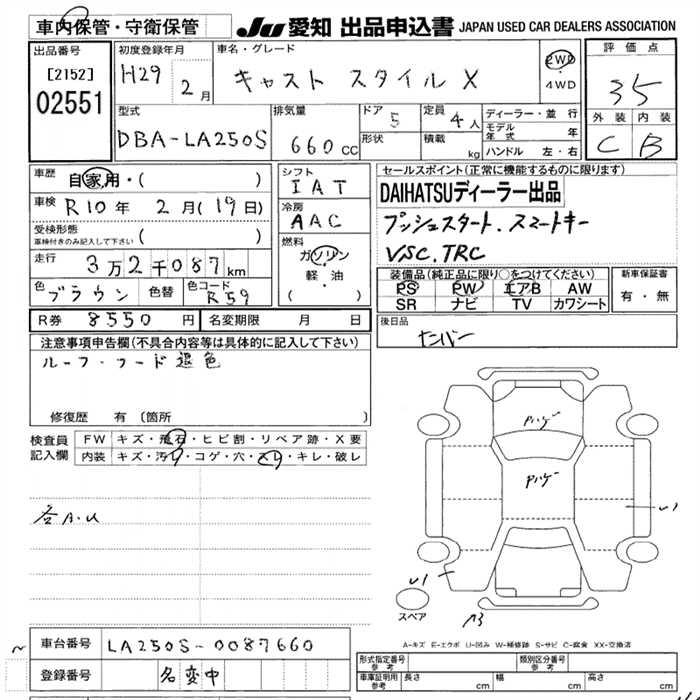 車内保管・守衛保管
JU 愛知 出品申込書 JAPAN USED CAR DEALERS ASSOCIATION
出品番号
[2152]
02551
初度登録年月
H29 2月
車名・グレード
キャスト スタイル X
2WD
4WD
評価点
35
外装 内装
C B
型式
DBA-LA250S
排気量
660cc
ドア 5
形状
定員 4人
積載 kg
ディーラー・並行
モデル年式 年
ハンドル 左・右
車歴
自家用・( )
車検
R10年 2月(19日)
受検形態
車検付きのみ記入して下さい ( )
走行
3万2千087km
色 ブラウン 色替 色コード R59
シフト
IAT
冷房
AAC
燃料
ガソリン
軽・油
( )
セールスポイント(正常に機能するものに限ります)
DAIHATSUディーラー出品
プッシュスタート.スマートキー
VSC.TRC
装備品(純正品に限り○をつけてください)
PS PW エアB AW
SR ナビ TV カワシート
新車保証書
有・無
R券 8550円 名変期限 月 日
後日品
ナンバー
注意事項申告欄(不具合内容等は具体的に記入して下さい)
ルーフ・フード退色
修復歴 有〔箇所
検査員記入欄
FW キズ・飛石・ヒビ割・リペア跡・X要
内装 キズ・汚レ・コゲ・穴・スレ・キレ・破レ
各A.U
Pハゲ
Pハゲ
U1
U1
A3
スペア
A-キズ E-エクボ U-凹み W-補修跡 S-サビ C-腐食 XX-交換済
車台番号 LA250S-0087660
登録番号 名変中
形式指定番号 参考
類別区分番号 参考
車庫証明用 参考 長さ cm 幅 cm 高さ cm